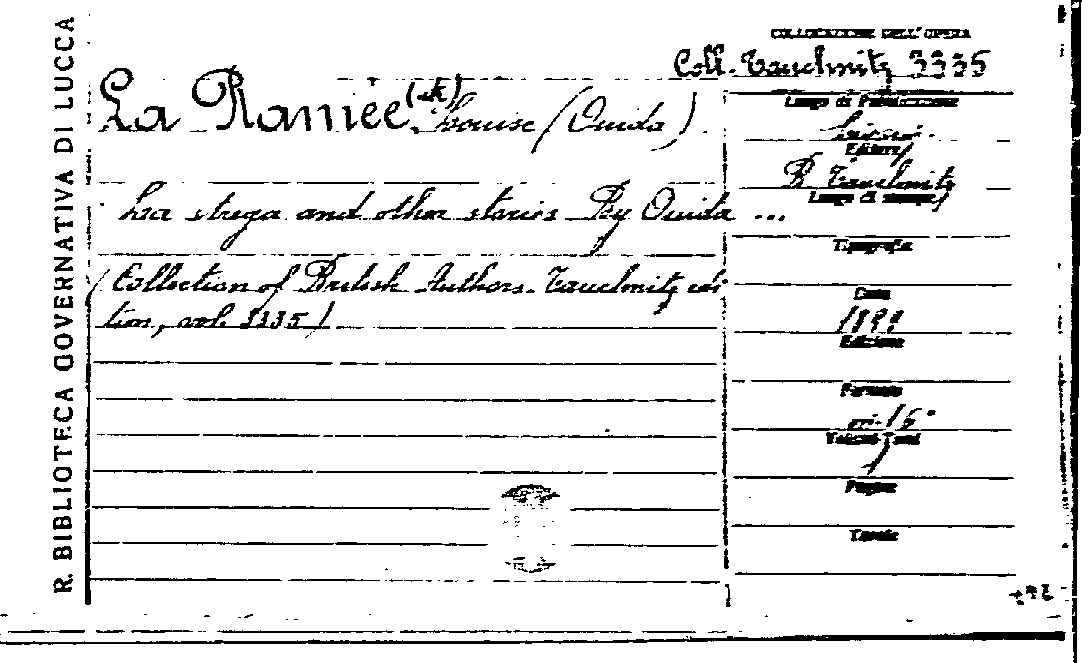 R. BIBLIOTECA GOVERNATIVA DI LUCCA
COLLOCAZIONE DELL'OPERA
Coll. Tauchnitz 3335
La Ramée (de) Louise (Ouida)
La strega and other stories By Ouida ...
(Collection of British Authors. Tauchnitz edi
tion, vol. 3335)
Luogo di Pubblicazione
Editore
B. Tauchnitz
Luogo di stampa
Tipografia
Data
1899
Edizione
Formato
in-16°
Volumi-Tomi
1
Pagine
Tavole